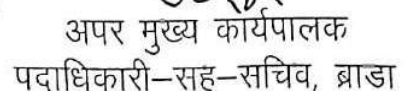 अपर मुख्य कार्यपालक
पदाधिकारी–सह–सचिव, ब्राडा